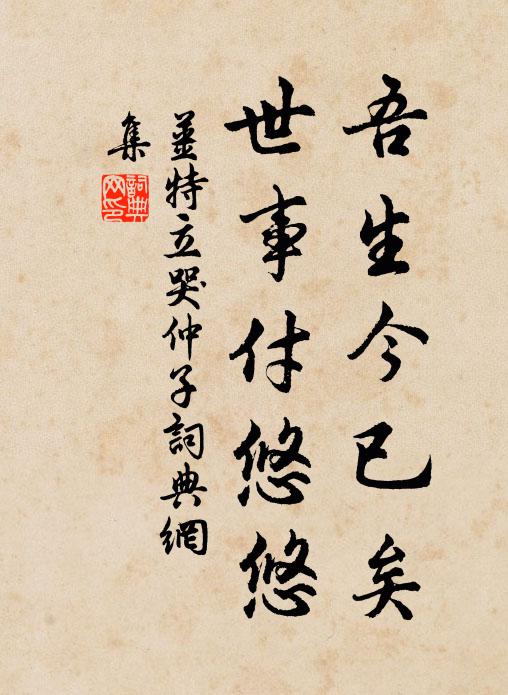 吾生今已矣
世事付悠悠
姜特立哭仲子詞典網
集
詞典網印